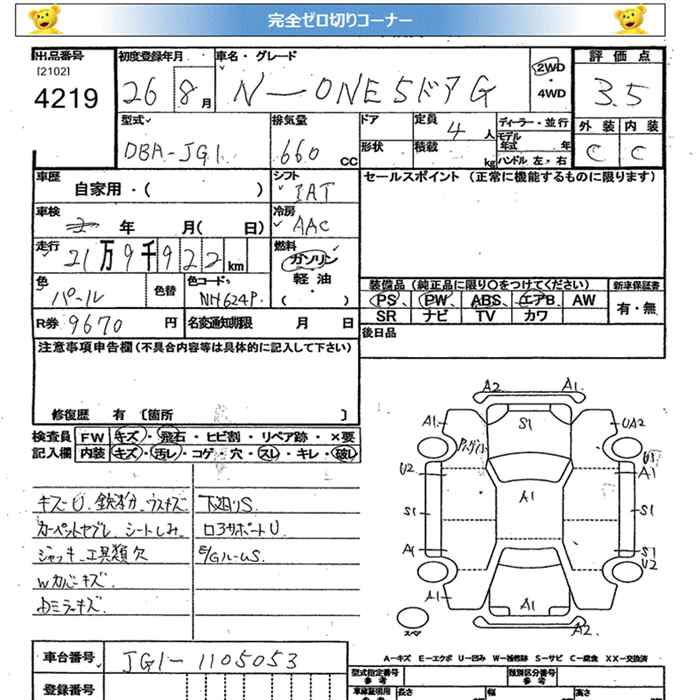 完全ゼロ切りコーナー
出品番号 初度登録年月 車名・グレード 評価点
[2102]
4219 26 8月 N-ONE 5ドア G 2WD・4WD 3.5
型式 排気量 ドア 定員 4人 ディーラー・並行 外装 内装
DBA-JG1 660 CC 形状 積載 kg モデル年式 年 C C
ハンドル 左・右
車歴 自家用・( ) シフト IAT セールスポイント (正常に機能するものに限ります)
車検 年 月( 日) 冷房 AAC
走行 21万9千922km 燃料 ガソリン
軽油
( )
色 パール 色替 色コード NH624P 装備品(純正品に限り○をつけてください) 新車保証書
PS PW ABS エアB AW 有・無
R券 9670円 名変通知期限 月 日 SR ナビ TV カワ
後日品
注意事項申告欄(不具合内容等は具体的に記入して下さい)
修復歴 有 [箇所 ]
検査員記入欄 FW キズ・飛石・ヒビ割・リペア跡・×要
内装 キズ・汚レ・コゲ・穴・スレ・キレ・破レ
キズU.鉄粉.ウスキズ 下廻りS.
カーペットヤブレ.シートしみ. ロアサポートU.
ジャッキ.工具類欠 E/GルームS.
Wカバーキズ.
Dミラーキズ.
A2 A1
A1 S1 UA2
U2 U1
A1
S1 A1 S1
A1 S1
U2
A1 A1 A1
スペア A2
A-キズ E-エクボ U-凹み W-補修跡 S-サビ C-腐食 XX-交換済
車台番号 JG1-1105053 型式指定番号 参考 類別区分番号 参考
登録番号 車庫証明用 参考 長さ 幅 高さ